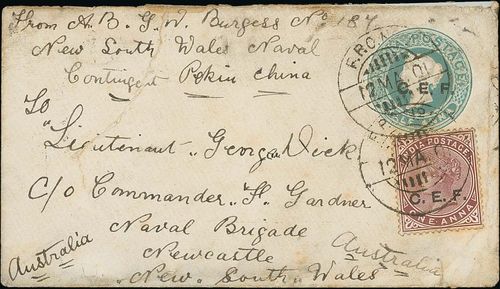 From A B G. W. Burgess No 187
New South Wales Naval
Contingent Pekin China
To
"Lieutenant" George Dick
C/o Commander F. Gardner
Naval Brigade
Newcastle
"New South Wales
Australia
Australia
F.P.O.
12 MA 01
C. E. F.
POSTAGE
12 MA
INDIA POSTAGE
C. E. F.
ONE ANNA